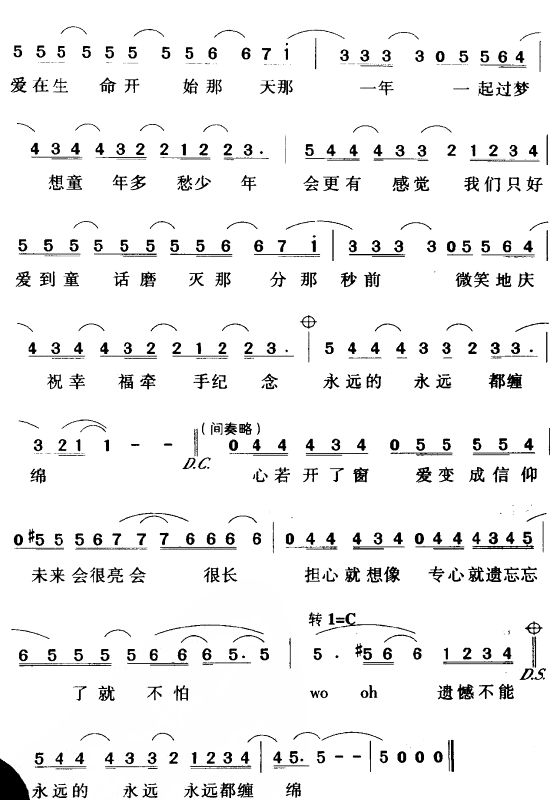 5 5 5 5 5 5 5 5 6 6 7 i 3 3 3 3 0 5 5 6 4
爱在生 命开 始那 天那 一年 一起过梦
4 3 4 4 3 2 2 1 2 2 3 · 5 4 4 4 3 3 2 1 2 3 4
想童 年多 愁少 年 会更有 感觉 我们只好
5 5 5 5 5 5 5 5 6 6 7 i 3 3 3 3 0 5 5 5 6 4
爱到童 话磨 灭那 分那 秒前 微笑地庆
4 3 4 4 3 2 2 1 2 2 3 · 5 4 4 4 3 3 2 3 3 ·
祝幸 福牵 手纪 念 永远的 永远 都缠
(间奏略)
3 2 1 1 - - 0 4 4 4 3 4 0 5 5 5 5 4
D.C.
绵 心若 开了窗 爱变 成信仰
0 #5 5 5 6 7 7 7 6 6 6 6 0 4 4 4 3 4 0 4 4 4 3 4 5
未来会很亮会 很长 担心就想像 专心就遗忘忘
转 1=C
6 5 5 5 5 6 6 6 5 · 5 5 · #5 6 6 1 2 3 4
D.S.
了就 不怕 wo oh 遗憾不能
5 4 4 4 3 3 2 1 2 3 4 4 5 · 5 - - 5 0 0 0
永远的 永远 永远都缠 绵